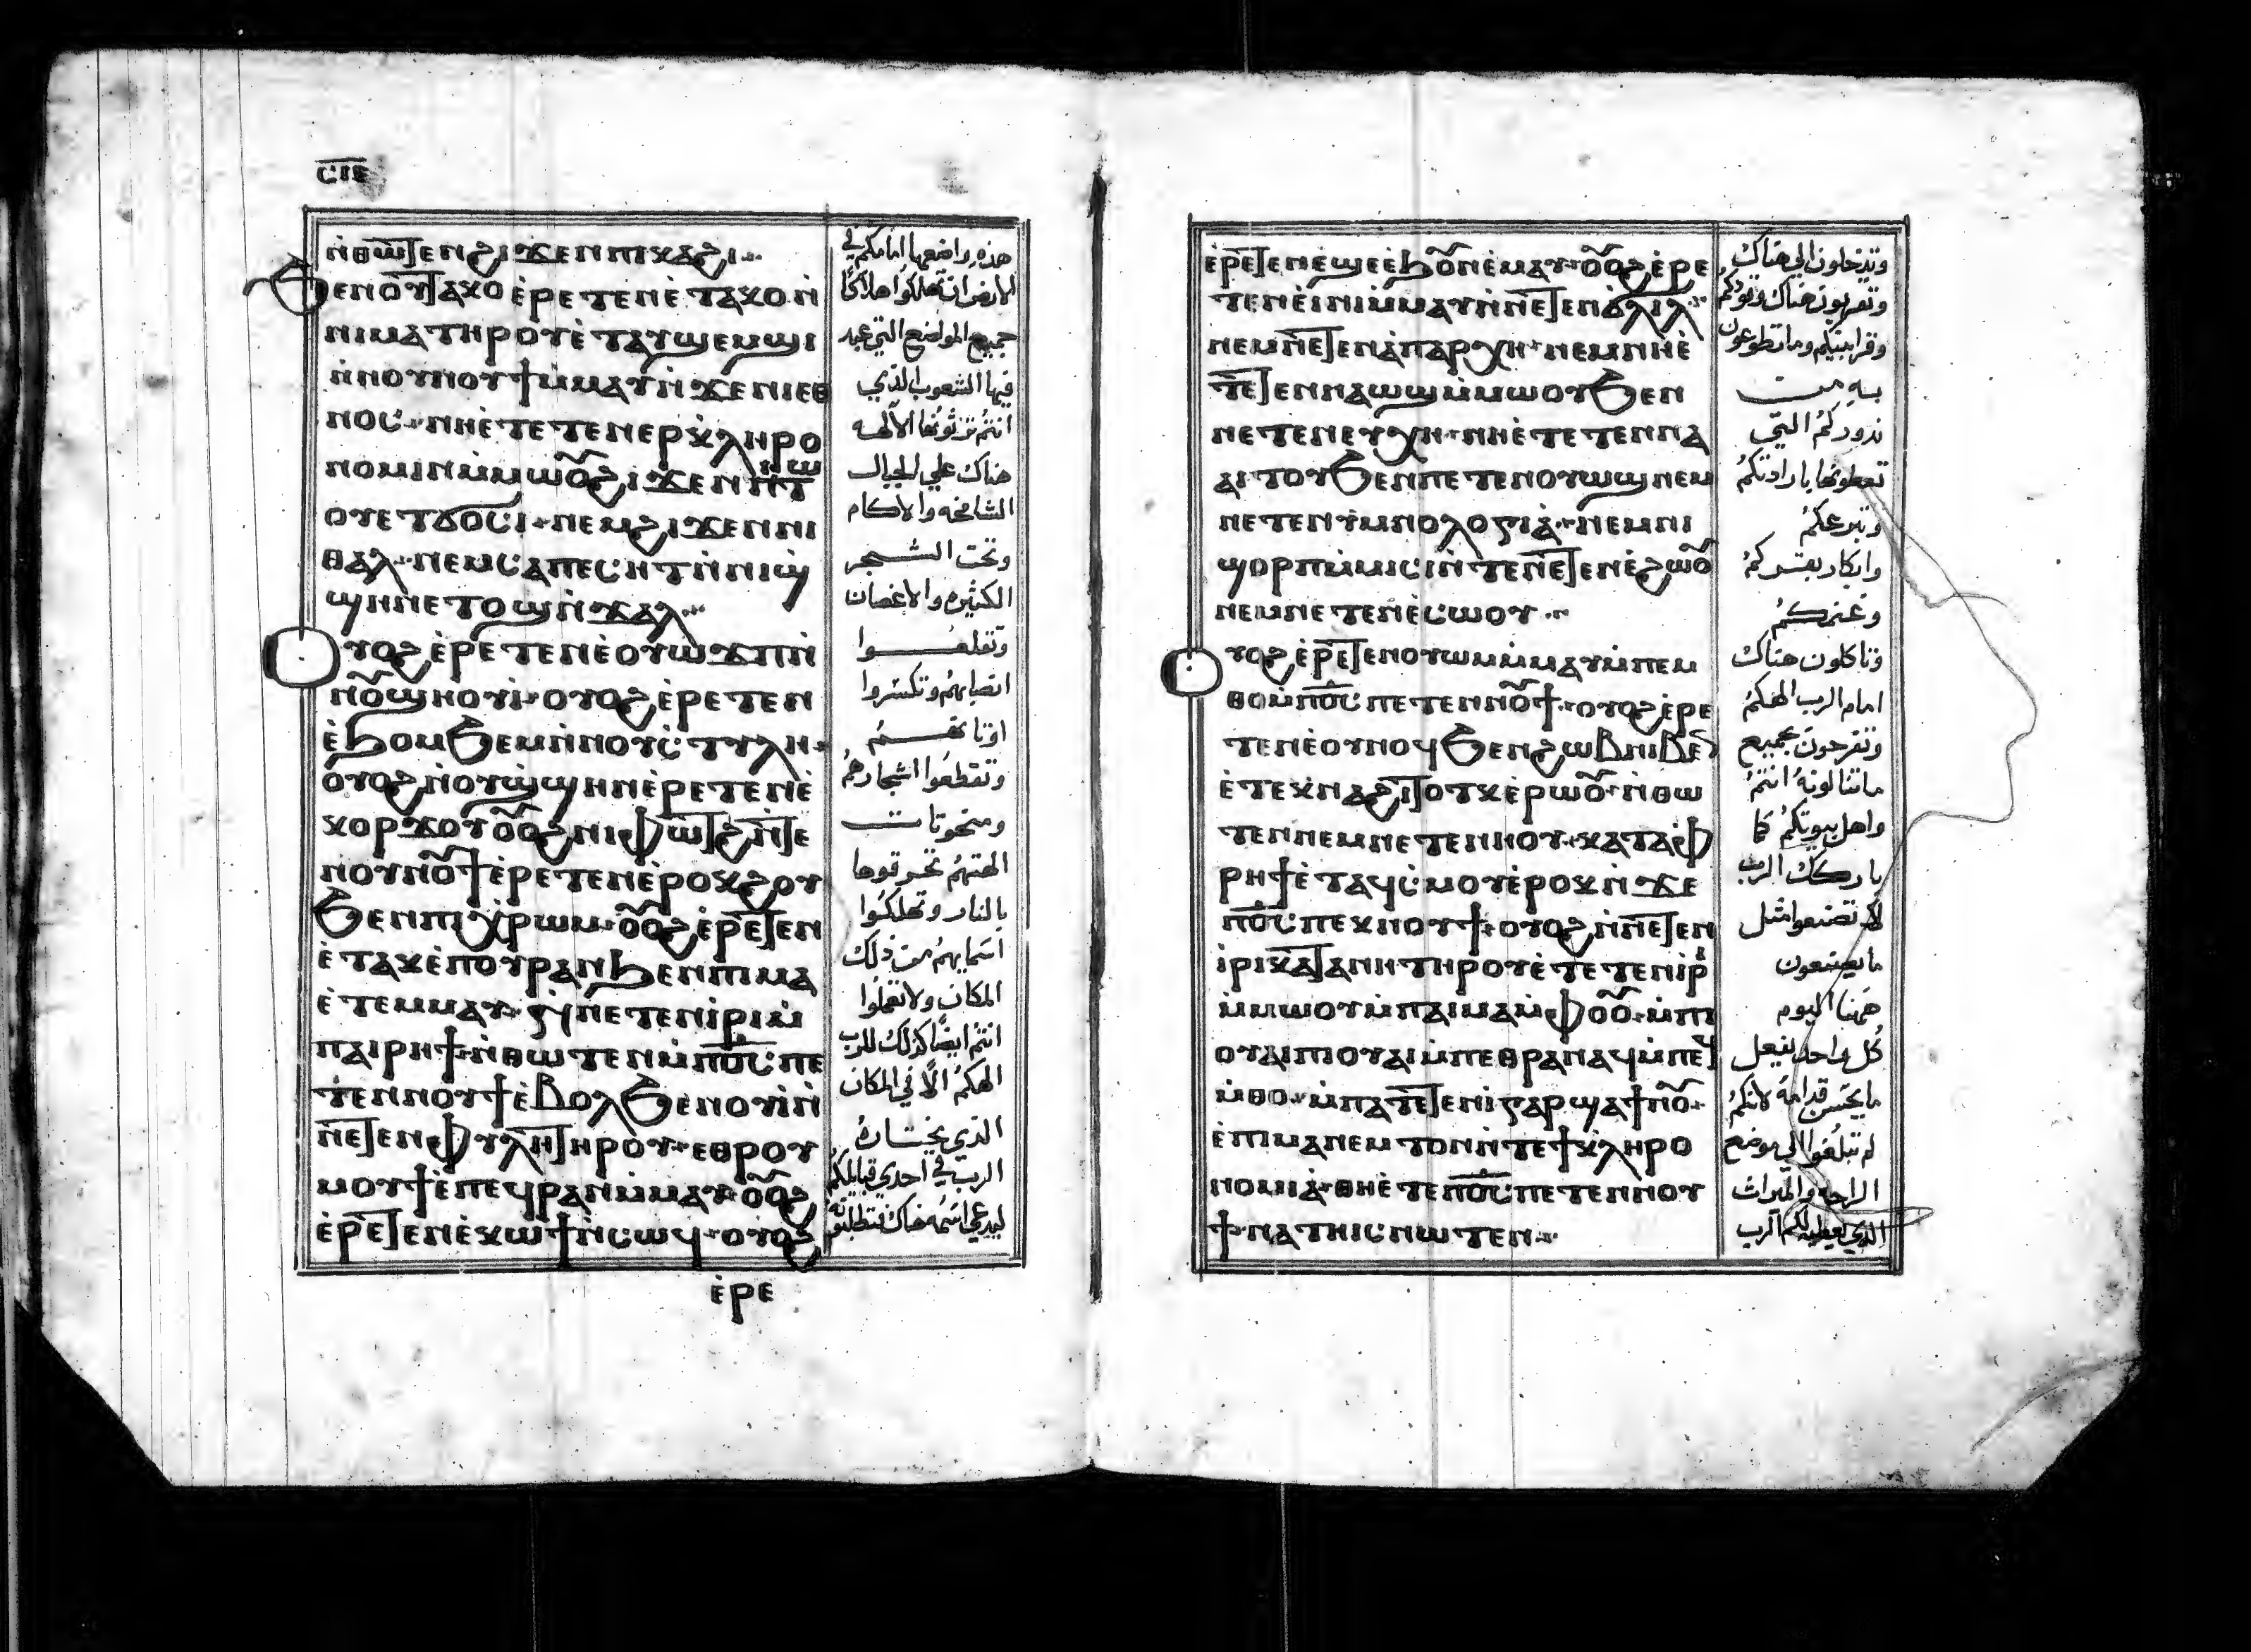 ⲥⲓⲉ
ⲛ̀ⲑⲱⲧⲉⲛ ϩⲓϫⲉⲛ ⲡⲓⲕⲁϩⲓ
ϧⲉⲛ ⲟⲩⲧⲁⲕⲟ ⲉ̀ⲣⲉⲧⲉⲛⲉ̀ⲧⲁⲕⲟ ⲛ̀
ⲛⲓⲙⲁ ⲧⲏⲣⲟⲩ ⲉ̀ⲧⲁⲩϣⲉⲙϣⲓ
ⲛ̀ⲛⲟⲩⲛⲟⲩϯ ⲙ̀ⲙⲁⲩ ⲛ̀ϫⲉ ⲛⲓⲉⲑ
ⲛⲟⲥ ⲛⲏⲉ̀ⲧⲉⲧⲉⲛⲉⲣⲕ̀ⲗⲏⲣⲟ
ⲛⲟⲙⲓⲛ ⲙ̀ⲙⲱⲟⲩ ϩⲓϫⲉⲛ ⲛⲓⲧⲱ
ⲟⲩ ⲉⲧϭⲟⲥⲓ ⲛⲉⲙ ϩⲓϫⲉⲛ ⲛⲓ
ⲑⲁⲗ ⲛⲉⲙ ⲥⲁⲡⲉⲥⲏⲧ ⲛ̀ⲛⲓϣ̀
ϣⲏⲛ ⲉⲧⲟϣ ⲛ̀ϫⲁⲗ
ⲟⲩⲟϩ ⲉ̀ⲣⲉⲧⲉⲛⲉ̀ⲟⲩⲱϫⲡ ⲛ̀
ⲛⲟⲩϣⲏⲟⲩⲓ̀ ⲟⲩⲟϩ ⲉ̀ⲣⲉⲧⲉⲛ
ⲉ̀ϧⲟⲙϧⲉⲙ ⲛ̀ⲛⲟⲩⲥ̀ⲧⲩⲗⲏ
ⲟⲩⲟϩ ⲛⲟⲩϣ̀ϣⲏⲛ ⲉ̀ⲣⲉⲧⲉⲛⲉ̀
ⲕⲟⲣϫⲟⲩ ⲟⲩⲟϩ ⲛⲓⲫⲱⲧϩ ⲛ̀ⲧⲉ
ⲛⲟⲩⲛⲟⲩϯ ⲉ̀ⲣⲉⲧⲉⲛⲉ̀ⲣⲟⲕϩⲟⲩ
ϧⲉⲛ ⲡⲓⲭ̀ⲣⲱⲙ ⲟⲩⲟϩ ⲉ̀ⲣⲉⲧⲉⲛ
ⲉ̀ⲧⲁⲕⲉ̀ ⲡⲟⲩⲣⲁⲛ ϧⲉⲛ ⲡⲓⲙⲁ
ⲉ̀ⲧⲉⲙⲙⲁⲩ ⲛ̀ⲛⲉⲧⲉⲛⲓ̀ⲣⲓ ⲙ̀
ⲡⲁⲓⲣⲏϯ ⲛ̀ⲑⲱⲧⲉⲛ ⲙ̀ⲡⲟ̅ⲥ̅ ⲡⲉ
ⲧⲉⲛⲛⲟⲩϯ ⲉ̀ⲃⲟⲗ ϧⲉⲛ ⲟⲩⲓ̀ ⲛ̀
ⲛⲉⲧⲉⲛⲫⲩⲗⲏ ⲧⲏⲣⲟⲩ ⲉⲑⲣⲟⲩ
ⲙⲟⲩϯ ⲉ̀ⲡⲉϥⲣⲁⲛ ⲙ̀ⲙⲁⲩ ⲟⲩⲟϩ
ⲉ̀ⲣⲉⲧⲉⲛⲉ̀ⲕⲱϯ ⲛ̀ⲥⲱϥ ⲟⲩⲟϩ
ⲉ̀ⲣⲉ
هذه واضعها امامكم في
الارض ان تهلكوا هلاكًا
جميع المواضع التي عبد
فيها الشعوب الذي
انتم ترثونها الآلهه
هناك علي الجبال
الشامخه والاكام
وتحت الشجر
الكثيره والاغصان
وتقلعوا
انصابهم وتكسروا
اوثانهم
وتقطعوا اشجارهم
ومنحوتات
الهتهم تحرقوها
بالنار وتهلكوا
اسمايهم من ذلك
المكان ولا تعملوا
انتم ايضًا كذلك للرب
الهكم الّا في المكان
الذي يختاره
الرب في احدي قبايلكم
ليدعي اسمه هناك فتطلبونه
ⲉ̀ⲣⲉⲧⲉⲛⲉ̀ϣⲉ ⲉ̀ϧⲟⲩⲛ ⲉ̀ⲙⲁⲩ ⲟⲩⲟϩ ⲉ̀ⲣⲉ
ⲧⲉⲛⲉ̀ⲓ̀ⲛⲓ ⲙ̀ⲙⲁⲩ ⲛ̀ⲛⲉⲧⲉⲛϭ̀ⲗⲓⲗ
ⲛⲉⲙ ⲛⲉⲧⲉⲛⲁ̀ⲡⲁⲣⲭⲏ ⲛⲉⲙ ⲛⲏⲉ̀
ⲧⲉⲧⲉⲛⲛⲁⲱϣ ⲙ̀ⲙⲱⲟⲩ ϧⲉⲛ
ⲛⲉⲧⲉⲛⲉⲩⲭⲏ ⲛⲏⲉ̀ⲧⲉⲧⲉⲛⲛⲁ
ⲁⲓⲧⲟⲩ ϧⲉⲛ ⲡⲉⲧⲉⲛⲟⲩⲱϣ ⲛⲉⲙ
ⲛⲉⲧⲉⲛⲩ̀ⲙⲛⲟⲗⲟⲅⲓⲁ̀ ⲛⲉⲙ ⲛⲓ
ϣⲟⲣⲡ ⲙ̀ⲙⲓⲥⲓ ⲛ̀ⲧⲉ ⲛⲉⲧⲉⲛⲉ̀ϩⲱⲟⲩ
ⲛⲉⲙ ⲛⲉⲧⲉⲛⲉ̀ⲥⲱⲟⲩ
ⲟⲩⲟϩ ⲉ̀ⲣⲉⲧⲉⲛⲟⲩⲱⲙ ⲙ̀ⲙⲁⲩ ⲙ̀ⲡⲉⲙ
ⲑⲟ ⲙ̀ⲡⲟ̅ⲥ̅ ⲡⲉⲧⲉⲛⲛⲟⲩϯ ⲟⲩⲟϩ ⲉ̀ⲣⲉ
ⲧⲉⲛⲉ̀ⲟⲩⲛⲟϥ ϧⲉⲛ ϩⲱⲃ ⲛⲓⲃⲉⲛ
ⲉ̀ⲧⲉⲕⲛⲁϩⲓⲧⲟⲧⲕ ⲉ̀ⲣⲱⲟⲩ ⲛ̀ⲑⲱ
ⲧⲉⲛ ⲛⲉⲙ ⲛⲉⲧⲉⲛⲏⲟⲩ ⲕⲁⲧⲁ ⲫ̀
ⲣⲏϯ ⲉ̀ⲧⲁϥⲥ̀ⲙⲟⲩ ⲉ̀ⲣⲟⲕ ⲛ̀ϫⲉ
ⲡⲟ̅ⲥ̅ ⲡⲉⲕⲛⲟⲩϯ ⲟⲩⲟϩ ⲛ̀ⲛⲉⲧⲉⲛ
ⲓ̀ⲣⲓ ⲕⲁⲧⲁ ⲛⲏ ⲧⲏⲣⲟⲩ ⲉ̀ⲧⲉⲧⲉⲛⲓ̀ⲣⲓ
ⲙ̀ⲙⲱⲟⲩ ⲙ̀ⲡⲁⲓⲙⲁ ⲙ̀ⲫⲟⲟⲩ ⲙ̀ⲡⲓ
ⲟⲩⲁⲓ ⲡⲓⲟⲩⲁⲓ ⲙ̀ⲡⲉⲑⲣⲁⲛⲁϥ ⲙ̀ⲡⲉϥ
ⲙ̀ⲑⲟ ⲙ̀ⲡⲁⲧⲉⲧⲉⲛⲓ̀ ⲅⲁⲣ ϣⲁ ϯⲛⲟⲩ
ⲉ̀ⲡⲓⲙⲁⲛⲉⲙⲧⲟⲛ ⲛ̀ⲧⲉ ϯⲕ̀ⲗⲏⲣⲟ
ⲛⲟⲙⲓⲁ̀ ⲑⲏⲉ̀ⲧⲉ ⲡⲟ̅ⲥ̅ ⲡⲉⲧⲉⲛⲛⲟⲩ
ϯ ⲛⲁⲧⲏⲓⲥ ⲛⲱⲧⲉⲛ
وتدخلون الي هناك
وتقربون هناك وقودكم
وقرابينكم وما تطوعون
به من
ندوركم التي
تعطونها بارادتكم
وتبرعكم
وابكار بقركم
وغنمكم
وتاكلون هناك
امام الرب الهكم
وتفرحون بجميع
ما تنالونه انتم
واهل بيوتكم كما
باركك الرب
لا تصنعوا مثل
ما يصنعون
ههنا اليوم
كل واحد يفعل
ما يحسن قدامه لانكم
لم تبلغوا الي موضع
الراحه والميراث
الذي يعطيه لكم الرب